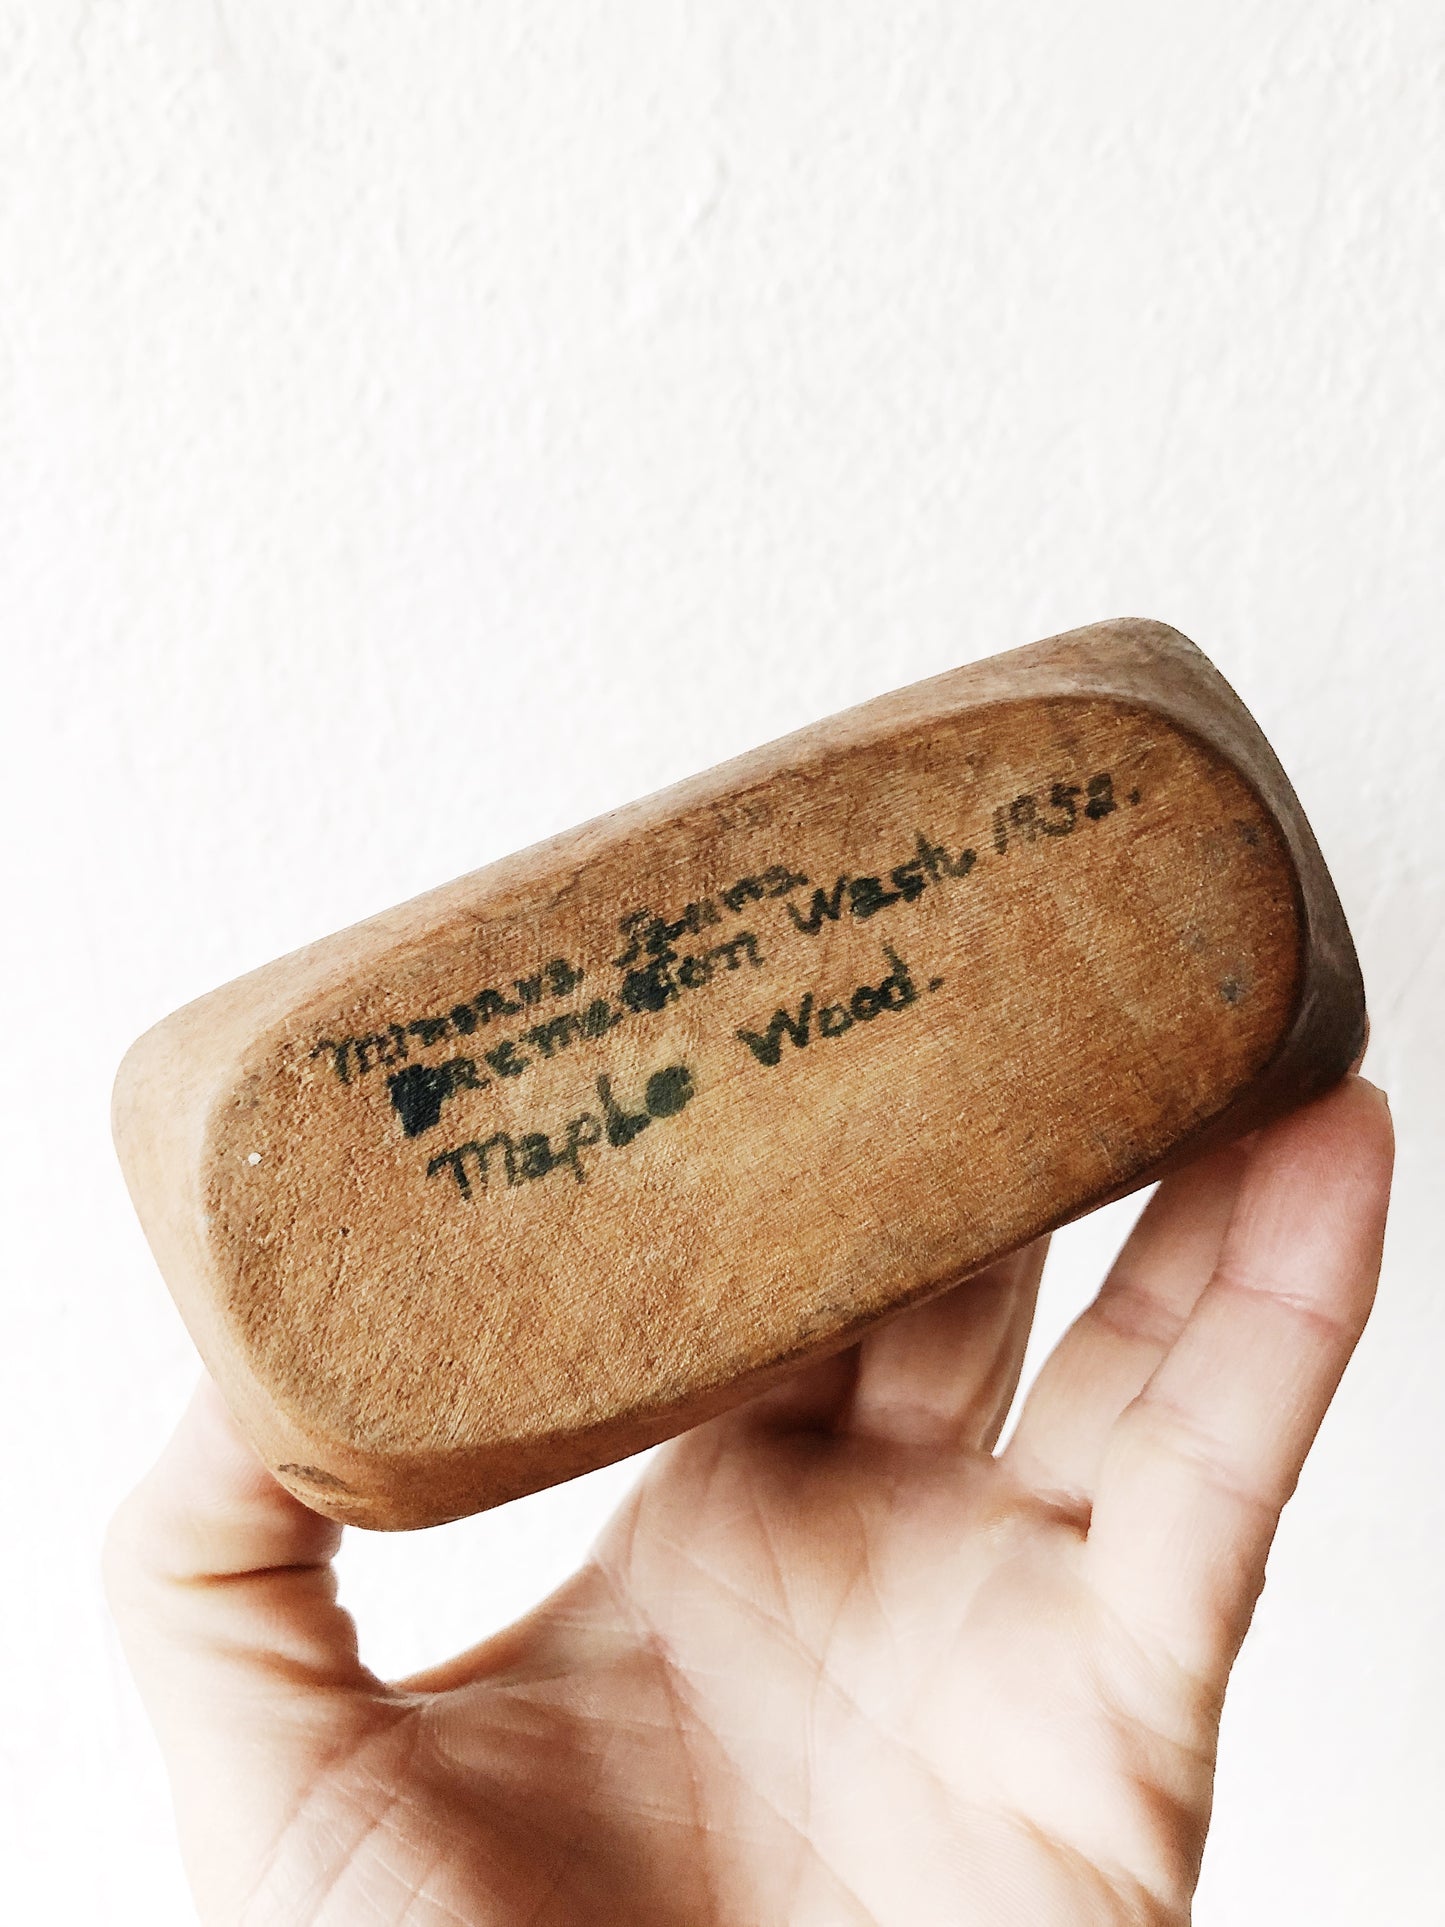 Minerva
Bremerton Wash, 1952.
Maple Wood.